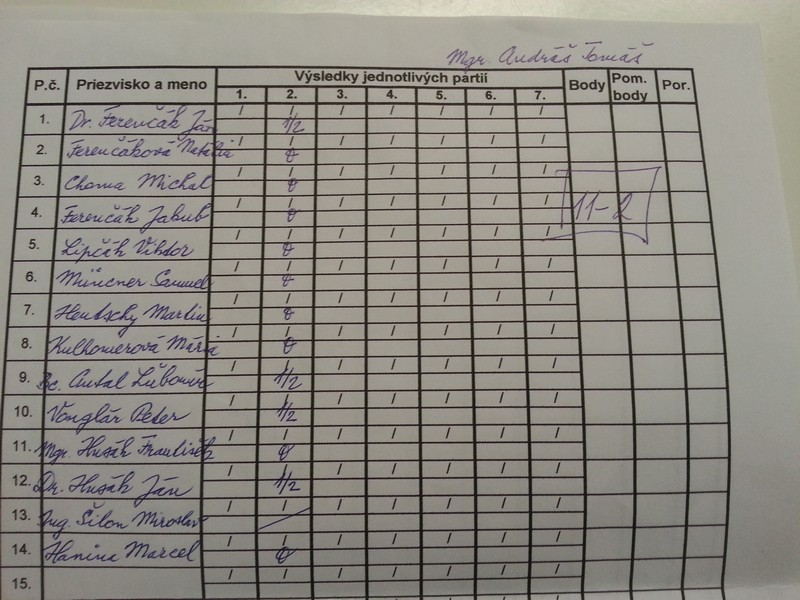 Mgr. Andráš Tomáš
P.č. Priezvisko a meno Výsledky jednotlivých partií Body Pom. body Por.
1. 2. 3. 4. 5. 6. 7.
1. Dr. Ferenčák Ján 1/2
2. Ferenčáková Natália 0
3. Choma Michal 0
4. Ferenčák Jakub 0
11-2
5. Lipčák Viktor 0
6. Müncner Samuel 0
7. Hentschy Martin 0
8. Kulhomerová Mária 0
9. Bc. Antal Ľubomír 1/2
10. Vonglár Peter 1/2
11. Mgr. Husák František 0
12. Dr. Husák Ján 1/2
13. Ing. Šilon Miroslav
14. Hanina Marcel 0
15.